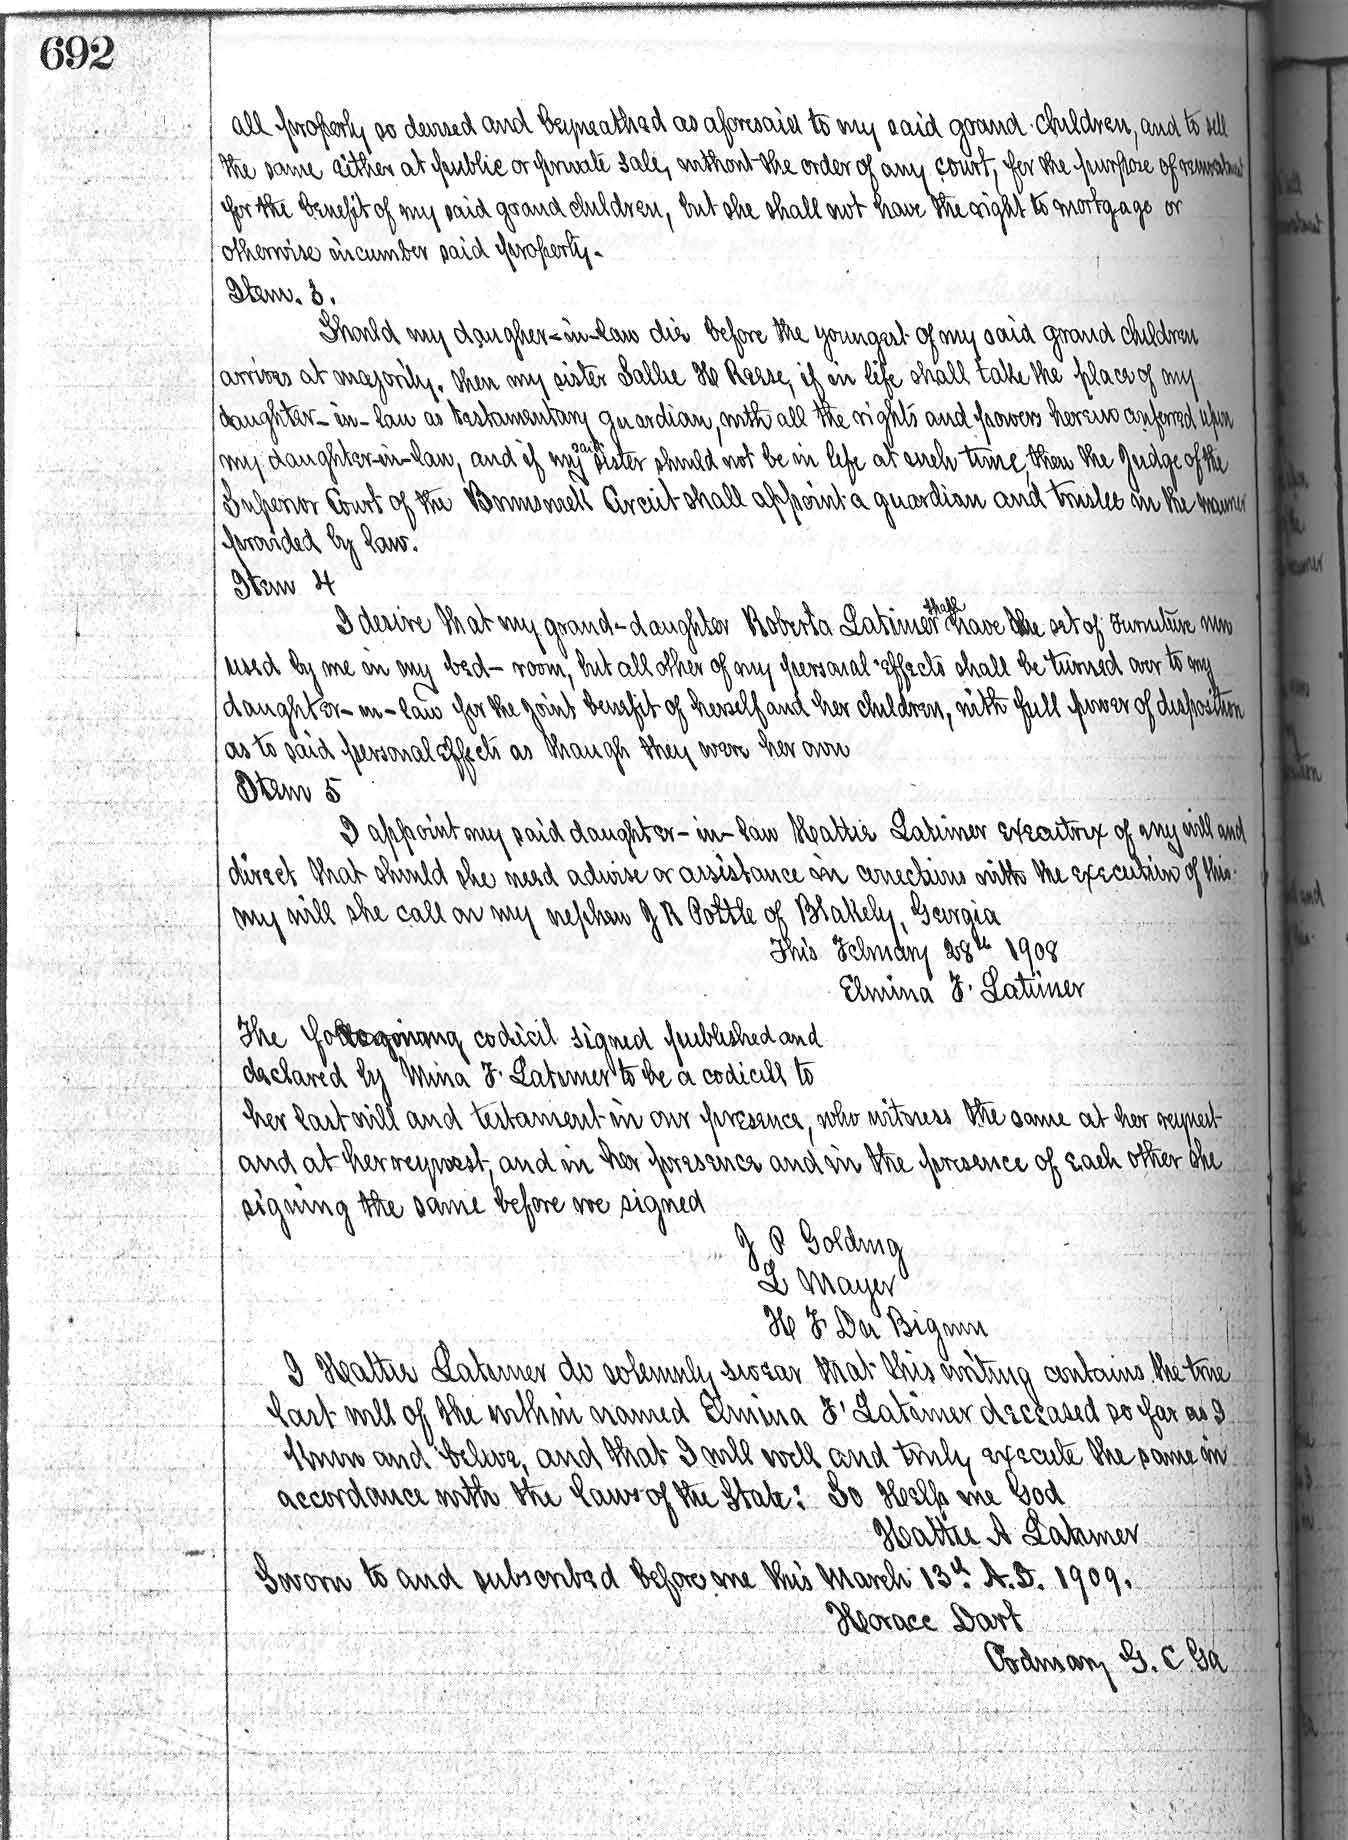 692
all property so devised and bequeathed as aforesaid to my said grand-children, and to sell
the same either at public or private sale, without the order of any court, for the purpose of reinvestment
for the benefit of my said grand children, but she shall not have the right to mortgage or
otherwise incumber said property.
Item. 3.
Should my daugher-in-law die before the youngest of my said grand children
arrives at majority. then my sister Sallie H Reese, if in life shall take the place of my
daughter-in-law as testamentary guardian, with all the rights and powers herein conferred upon
my daughter-in-law, and if my said sister should not be in life at such time, then the Judge of the
Superior Court of the Brunswick Circuit shall appoint a guardian and trustee in the manner
provided by law.
Item 4
I desire that my grand-daughter Roberta Latimer shall have the set of Furniture now
used by me in my bed-room, but all other of my personal effects shall be turned over to my
daughter-in-law for the joint benefit of herself and her children, with full power of disposition
as to said personal effects as though they were her own
Item 5
I appoint my said daughter-in-law Hattie Latimer executrix of my will and
direct that should she need advise or assistance in conections with the execution of this
my will she call on my nephew J R Pottle of Blakely, Georgia
This February 28th 1908
Elmina F. Latimer
The foregoing codicil signed published and
declared by Mina F. Latimer to be a codicill to
her last will and testament in our presence, who witness the same at her request
and at her request, and in her presence and in the presence of each other she
signing the same before we signed
J P Golding
L Mayer
H F Du Bignon
I Hattie Latimer do solemnly swear that this writing contains the true
last will of the within named Elmina F. Latimer deceased so far as I
know and believe, and that I will well and truly execute the same in
accordance with the laws of the State: So Help me God
Hattie A Latimer
Sworn to and subscribed before me this March 13th A.D. 1909.
Horace Dart
Ordinary G. C Ga